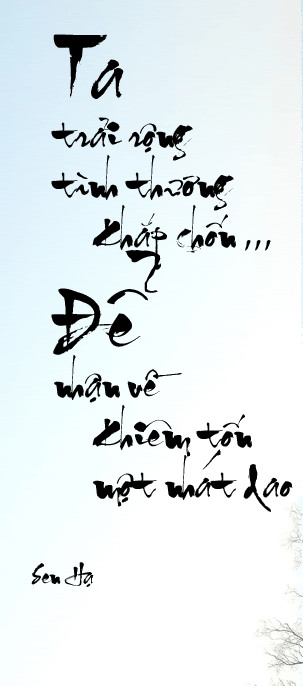 Ta
trải rộng
tình thương
khắp chốn ,,,
?
Để
nhận về
khiêm tốn
một nhát dao
Sen Hạ